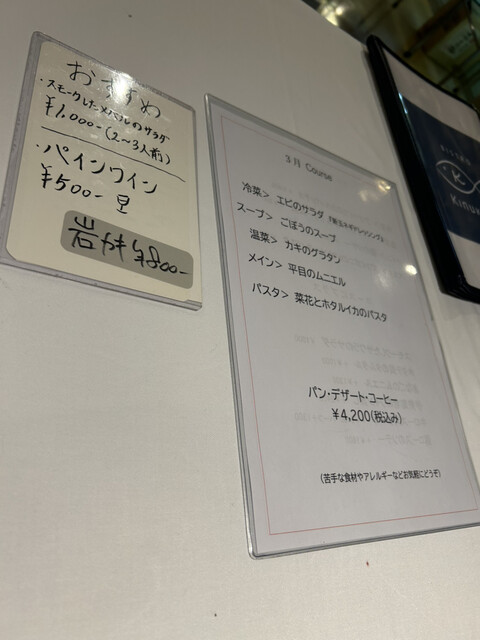 おすすめ
・スモークしたメバルのサラダ
¥1,000-(2〜3人前)
・パインワイン
¥500-
岩ガキ ¥800-
3月 Course
冷菜> エビのサラダ『新玉ネギドレッシング』
スープ> ごぼうのスープ
温菜> カキのグラタン
メイン> 平目のムニエル
パスタ> 菜花とホタルイカのパスタ
パン・デザート・コーヒー
¥4,200(税込み)
(苦手な食材やアレルギーなどお気軽にどうぞ)
BISTRO
K